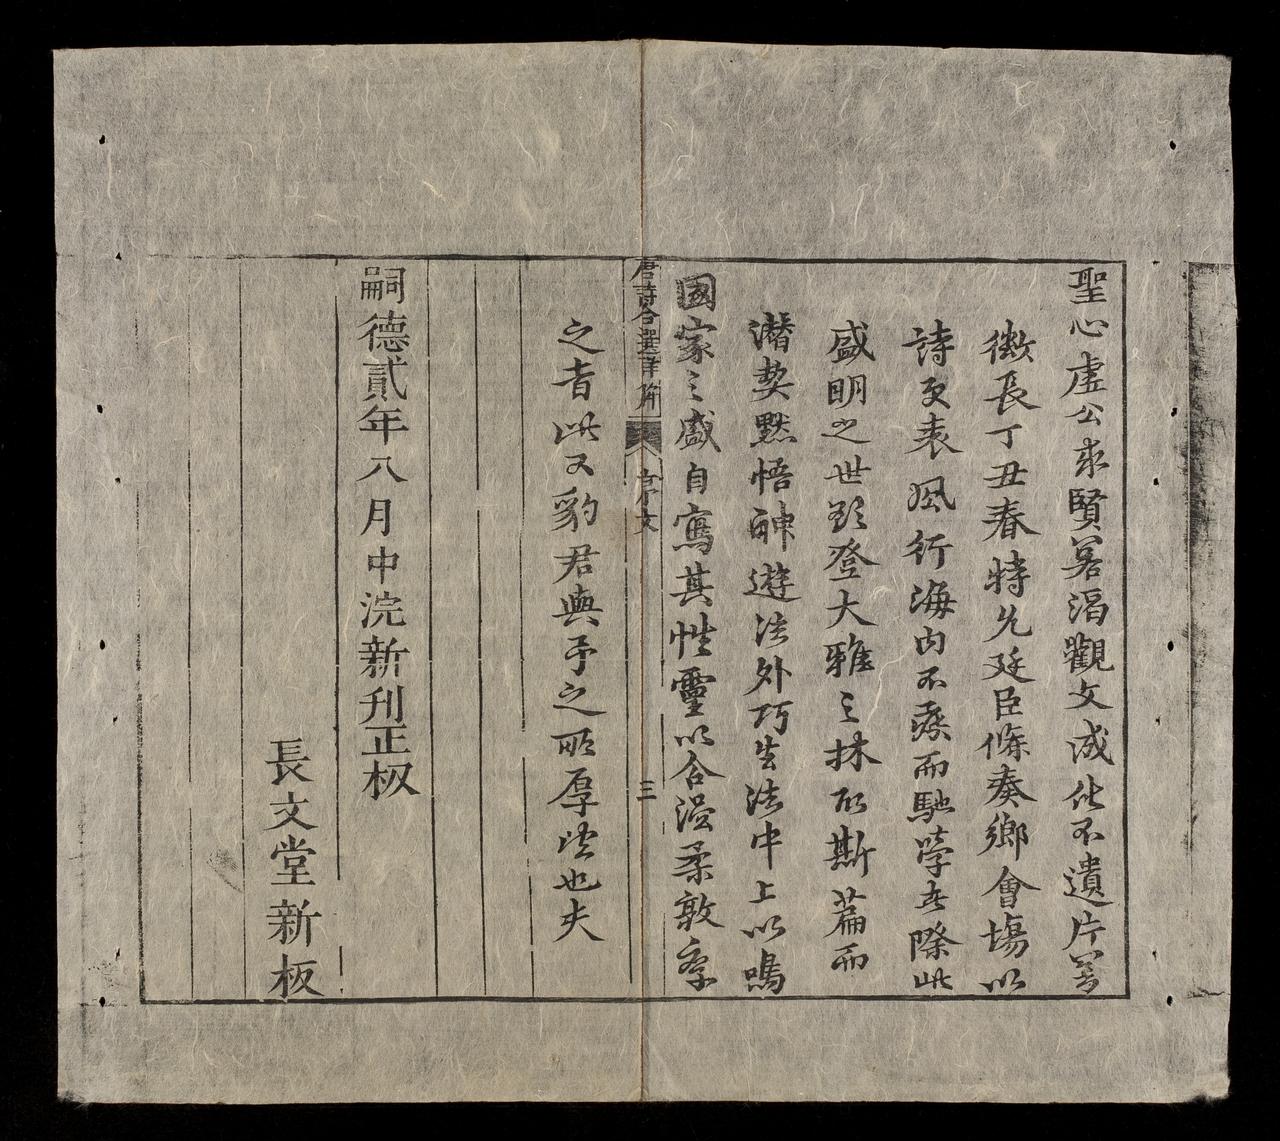 聖心虛公求賢若渴觀文成化不遺片善
徵長丁丑春特允廷臣條奏鄉會場以
詩取表風行海內不疾而馳㝍此際此
盛明之世欲登大雅之林取斯篇而
潛契默悟神遊法外巧生法中上以鳴
國家之盛自寫其性靈以合溫柔敦厚
唐詩合選詳解
序文
三
之者此又豹君與予之所厚望也夫
嗣德貳年八月中浣新刊正板
長文堂新板